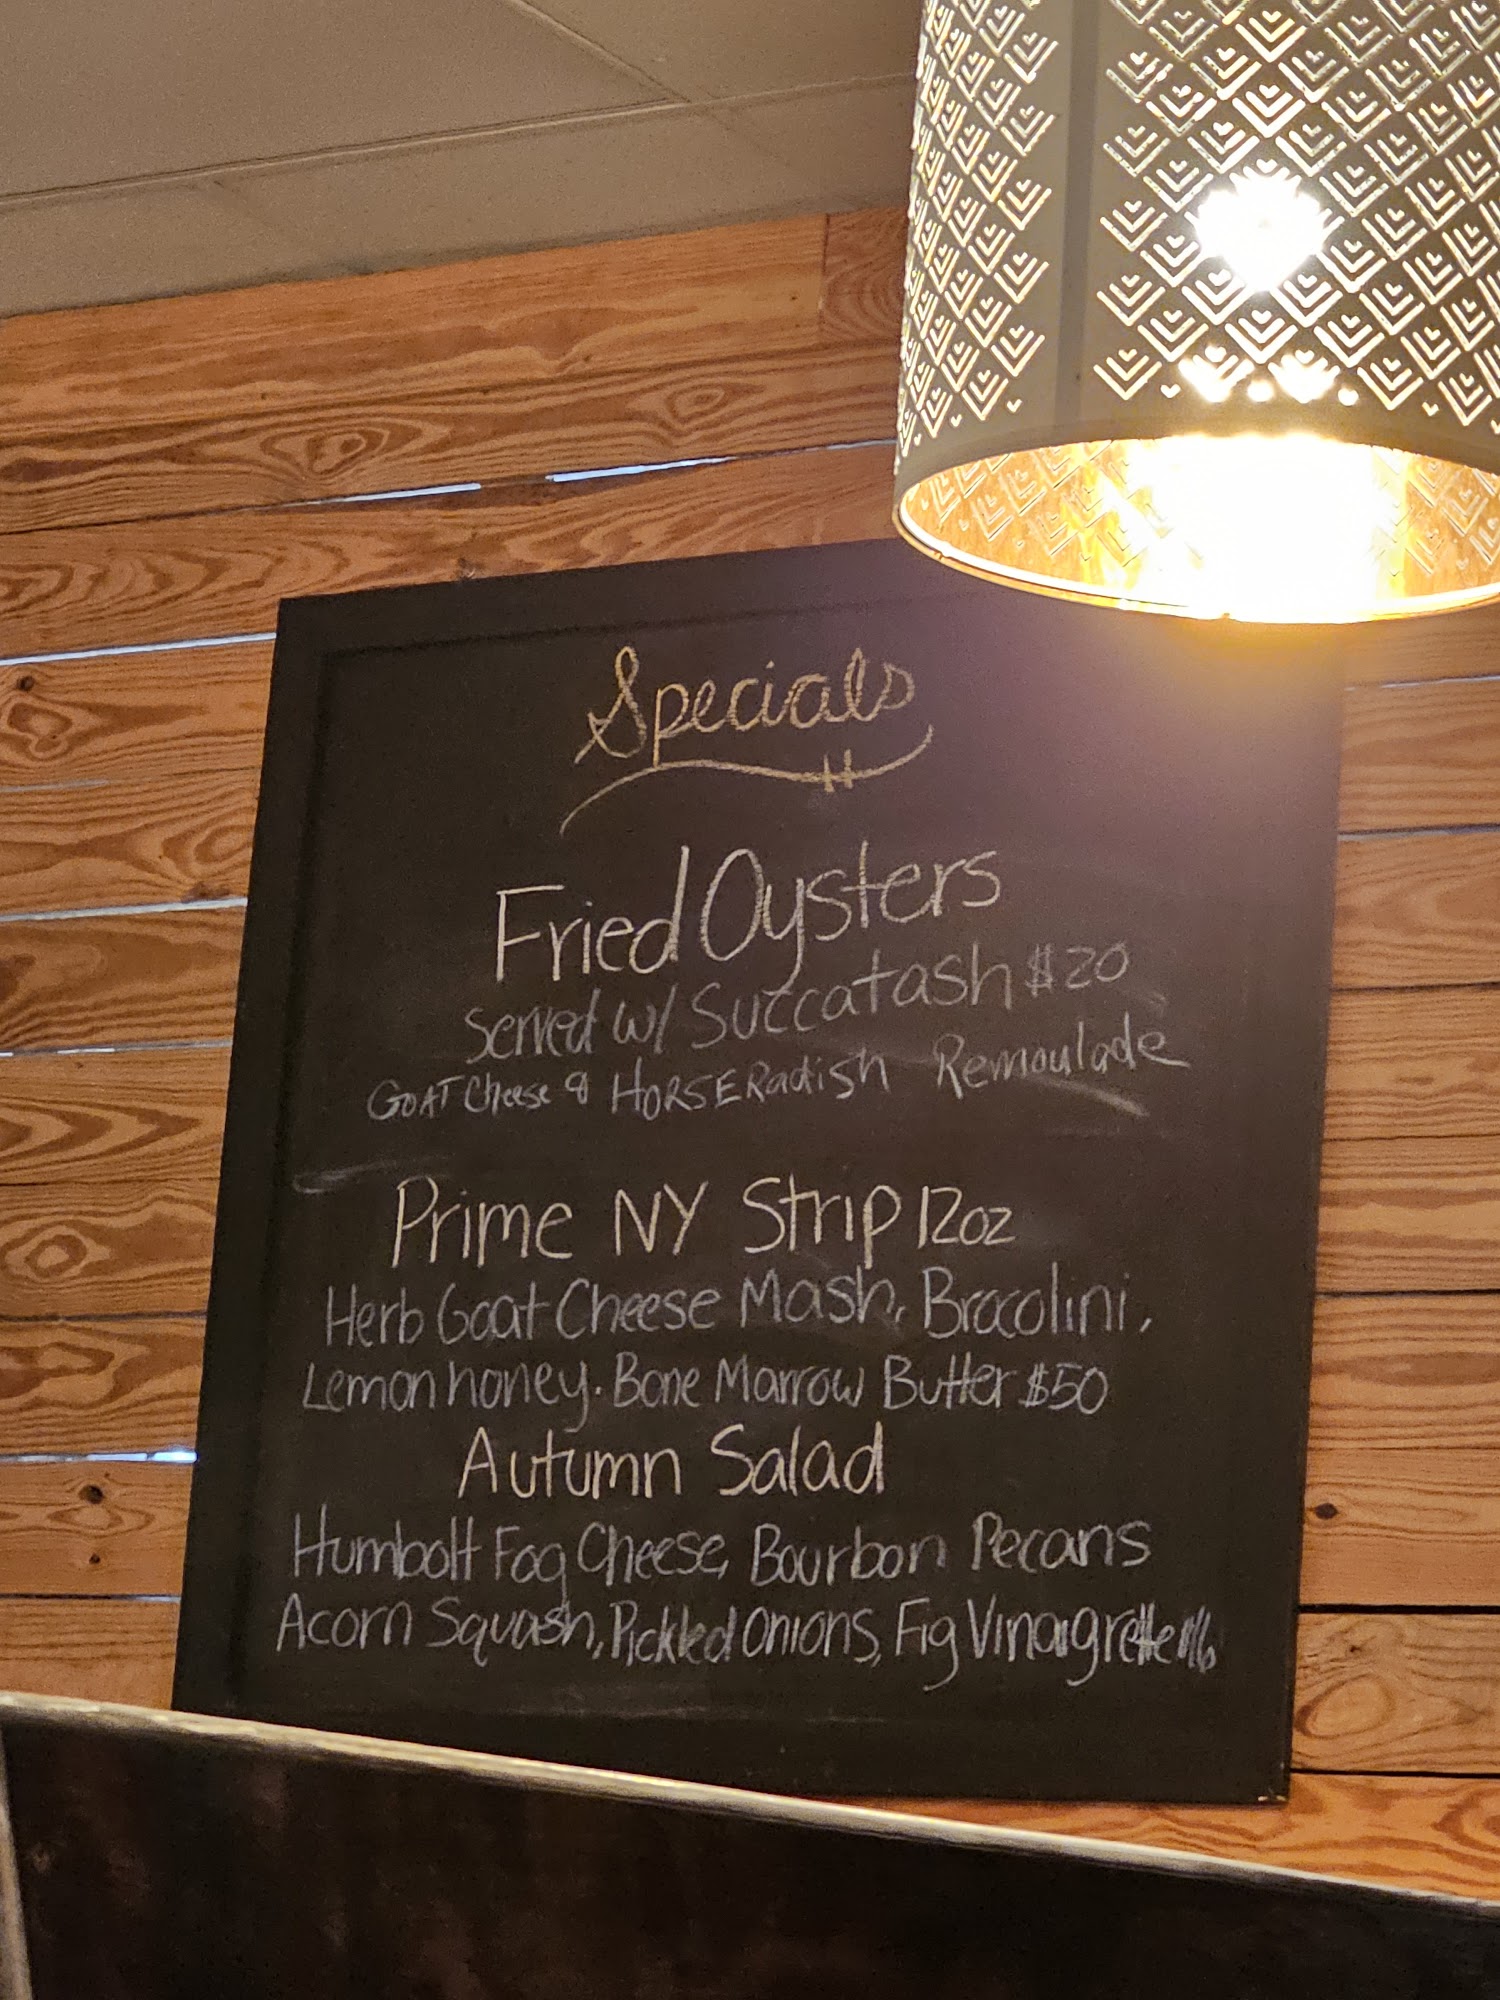 Specials
Fried Oysters
Served w/ Succatash $20
GOAT Cheese & HORSERadish Remoulade
Prime NY Strip 12oz
Herb Goat Cheese Mash, Brocolini,
Lemon honey. Bone Marrow Butter $50
Autumn Salad
Humbolt Fog Cheese, Bourbon Pecans
Acorn Squash, Pickled Onions, Fig Vinaigrette